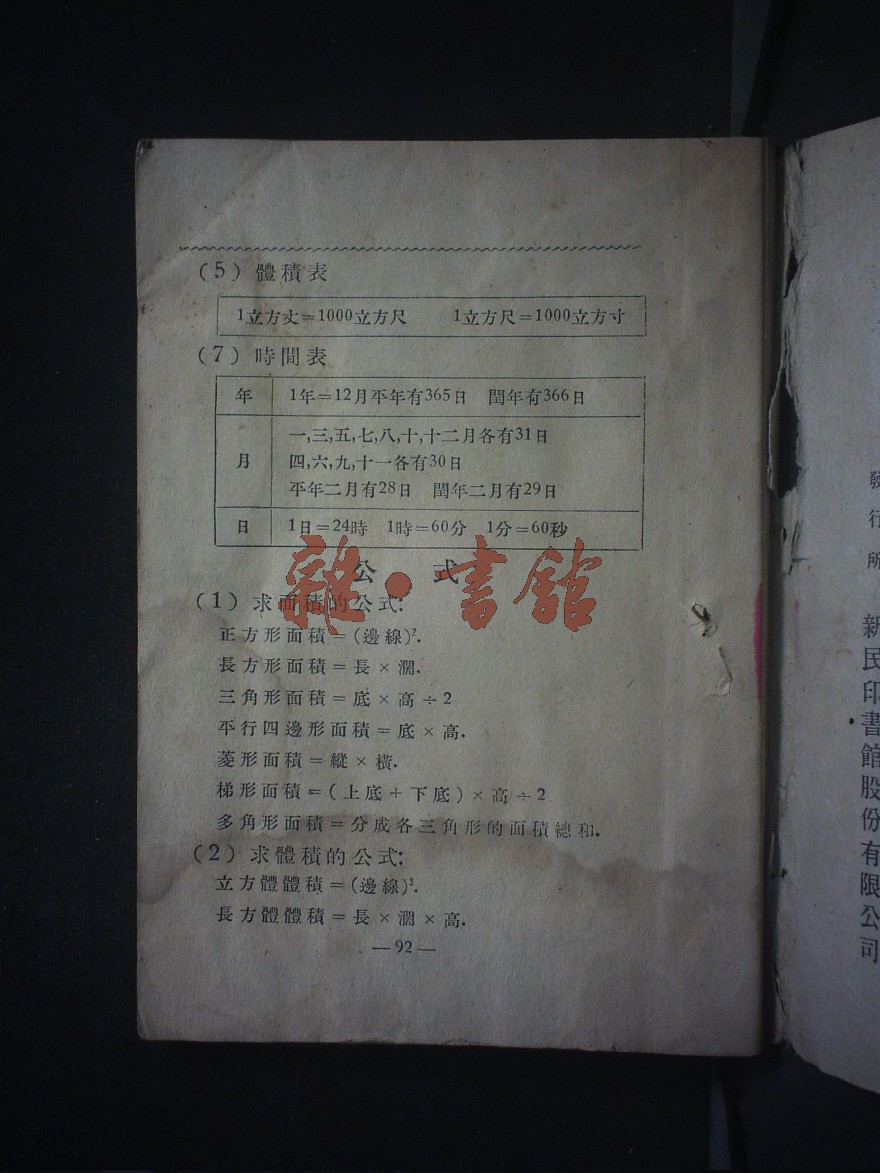 (5) 體積表
1立方丈=1000立方尺 1立方尺=1000立方寸
(7) 時間表
年 1年=12月平年有365日 閏年有366日
月 一,三,五,七,八,十,十二月各有31日
四,六,九,十一各有30日
平年二月有28日 閏年二月有29日
日 1日=24時 1時=60分 1分=60秒
公式
雜·書館
(1) 求面積的公式:
正方形面積=(邊線)².
長方形面積=長×濶.
三角形面積=底×高÷2
平行四邊形面積=底×高.
菱形面積=縱×橫.
梯形面積=(上底+下底)×高÷2
多角形面積=分成各三角形的面積總和.
(2) 求體積的公式:
立方體體積=(邊線)³.
長方體體積=長×濶×高.
—92—
發行所
新民印書館股份有限公司